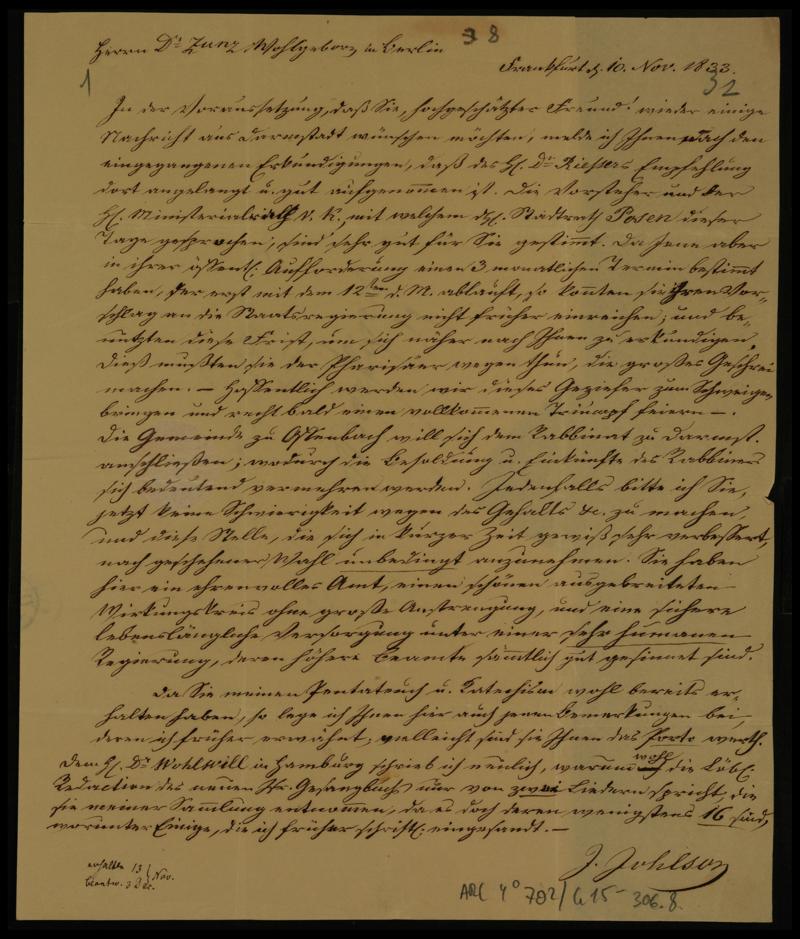 Herrn Dr Zunz Wohlgeborn in Berlin
8
Frankfurt d. 10. Nov. 1833.
1
32
In der Voraussetzung, daß Sie, hochgeschätzter Freund! wieder einige
Nachricht aus Darmstadt wünschen möchten, melde ich Ihnen nach den
eingegangenen Erkundigungen, daß des H. Dr Riessers Empfehlung
dort angelangt u. gut aufgenommen ist. Die Vorsteher und der
H. Ministerialrath v. K., mit welchem d. H. Stadtrath Posen dieser
Tage gesprochen, sind sehr gut für Sie gestimmt. Da jene aber
in ihrer öffentl. Aufforderung einen 3 monatlichen Termin bestimmt
haben, der erst mit dem 12ten d. M. abläuft, so konnten sie ihren Vor-
schlag an die Staatsregierung nicht früher einreichen; und be-
nutzten diese Frist, um sich näher nach Ihnen zu erkundigen.
Dieß mußten sie der Pharisäer wegen thun, die großes Geschrei
machen. — Hoffentlich werden wir dieses Geziefer zum Schweigen
bringen und recht bald einen vollkommenen Triumpf feiern —.
Die Gemeinde zu Offenbach will sich dem Rabbinat zu Darmst.
anschließen; wodurch die Besoldung u. Einkünfte des Rabbiners
sich bedeutend vermehren werden. Jedenfalls bitte ich Sie,
jetzt keine Schwierigkeit wegen des Gehalts &c. zu machen,
und diese Stelle, die sich in kurzer Zeit gewiß sehr verbessert,
nach geschehener Wahl unbedingt anzunehmen. Sie haben
hier ein ehrenvolles Amt, einen schönen ausgebreiteten
Wirkungskreis ohne große Anstrengung, und eine sichere
lebenslängliche Versorgung unter einer sehr humanen
Regierung, deren höhere Beamte sämtlich gut gesinnet sind.
Da Sie meinen Pentateuch u. Katechism wohl bereits er-
halten haben, so lege ich Ihnen hier auch jenen Bemerkungen bei
deren ich früher erwähnt; vielleicht sind sie Ihnen das Porto werth.
Dem H. Dr Wohlwill in Hamburg schrieb ich neulich, warum wohl die Löbl.
Redaction des neuen Gesangbuchs nur von zwei Liedern spricht, die
sie meiner Sammlung entnommen, da es doch deren wenigstens 16 sind,
worunter Einige, die ich früher schriftl. eingesandt. —
J. Johlson
erhalten 13 Nov.
beantw. 3 Dec.
ARC 4° 792/G 15-306.8.